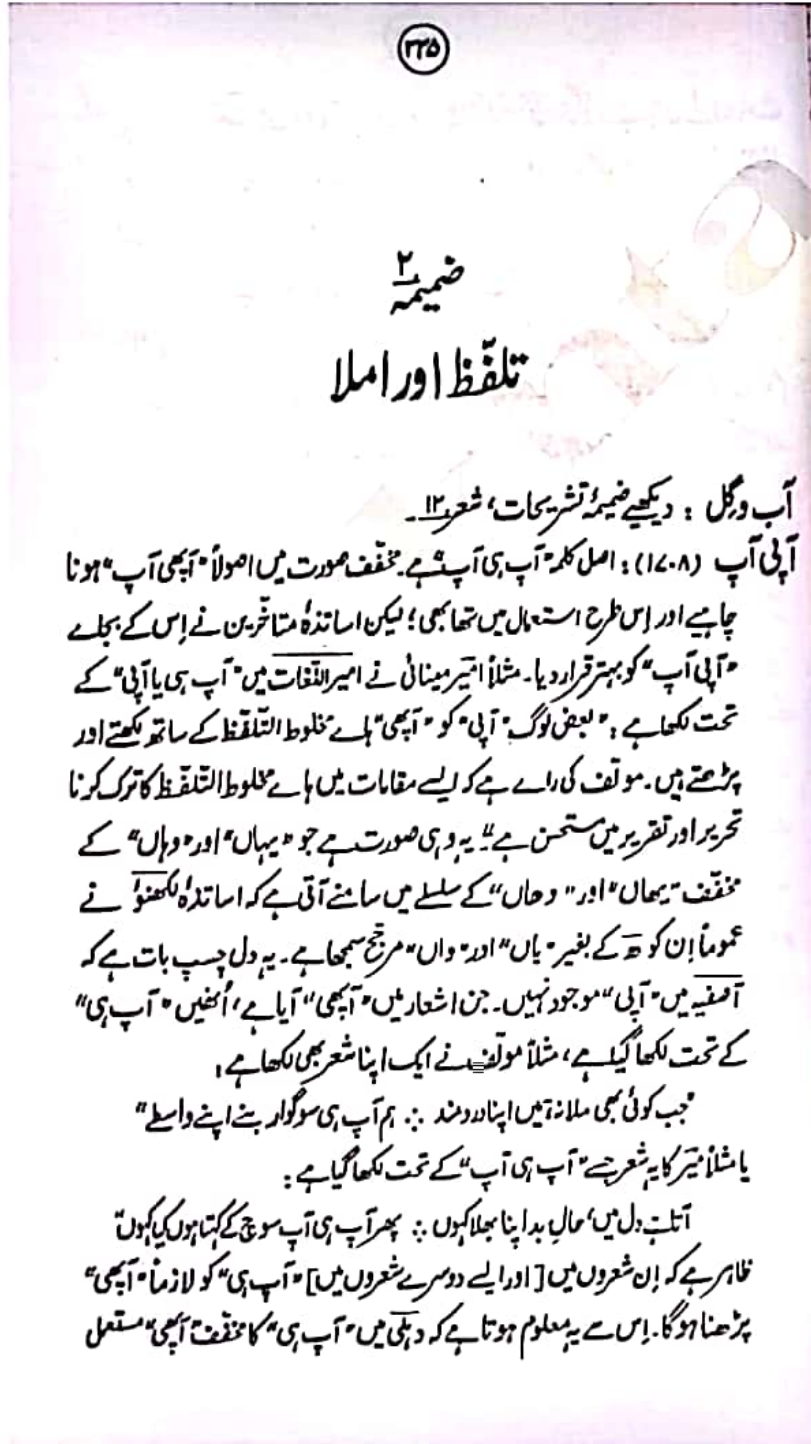 ۲۲۵
ضمیمہ ۲
تلفّظ اور املا
آب و گِل : دیکھیے ضمیمۂ تشریحات، شعر ۱۲۔
آپی آپ (۱۷۰۸): اصل کلمہ "آپ ہی آپ" ہے۔ مخفّف صورت میں اصولاً "آپھی آپ" ہونا
چاہیے اور اِس طرح استعمال میں تھا بھی؛ لیکن اساتذۂ متاخّرین نے اِس کے بجاے
"آپی آپ" کو بہتر قرار دیا۔ مثلاً امیر مینائی نے امیر اللغات میں "آپ ہی یا آپی" کے
تحت لکھا ہے : "بعض لوگ "آپی" کو "آپھی" ہاے مخلوط التّلفّظ کے ساتھ لکھتے اور
پڑھتے ہیں۔ مولّف کی راے ہے کہ ایسے مقامات میں ہاے مخلوط التّلفّظ کا ترک کرنا
تحریر اور تقریر میں مستحسن ہے"۔ یہ وہی صورت ہے جو "یہاں" اور "وہاں" کے
مخفّف "یھاں" اور "وھاں" کے سلسلے میں سامنے آتی ہے کہ اساتذۂ لکھنؤ نے
عموماً اِن کو ھ کے بغیر "یاں" اور "واں" مرجّح سمجھا ہے۔ یہ دل چسپ بات ہے کہ
آصفیہ میں "آپی" موجود نہیں۔ جن اشعار میں "آپھی" آیا ہے، اُنھیں "آپ ہی"
کے تحت لکھا گیا ہے، مثلاً مولّف نے ایک اپنا شعر بھی لکھا ہے :
"جب کوئی بھی ملا نہ ہمیں اپنا دردمند ∴ ہم آپ ہی سوگوار بنے اپنے واسطے"
یا مثلاً میر کا یہ شعر جسے "آپ ہی آپ" کے تحت لکھا گیا ہے :
آتا ہے دل میں، حالِ بد اپنا بھلا کہوں ∴ پھر آپ ہی آپ سوچ کے کہتا ہوں کیا کہوں"
ظاہر ہے کہ اِن شعروں میں [اور ایسے دوسرے شعروں میں] "آپ ہی" کو لازماً "آپھی"
پڑھنا ہوگا۔ اِس سے یہ معلوم ہوتا ہے کہ دہلی میں "آپ ہی" کا مخفّف "آپھی" مستعمل